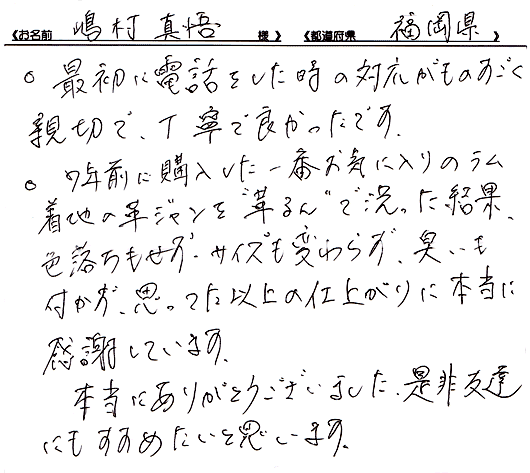 《お名前 嶋村 真悟 様 》 《都道府県 福岡県 》
○ 最初に電話をした時の対応がものすごく
親切で、丁寧で良かったです。
○ 7年前に購入した一番お気に入りのラム
着地の革ジャンを"革るん"で洗った結果、
色落ちもせず、サイズも変わらず、臭いも
付かず、思ってた以上の仕上がりに本当に
感謝しています。
本当にありがとうございました。是非友達
にもすすめたいと思います。